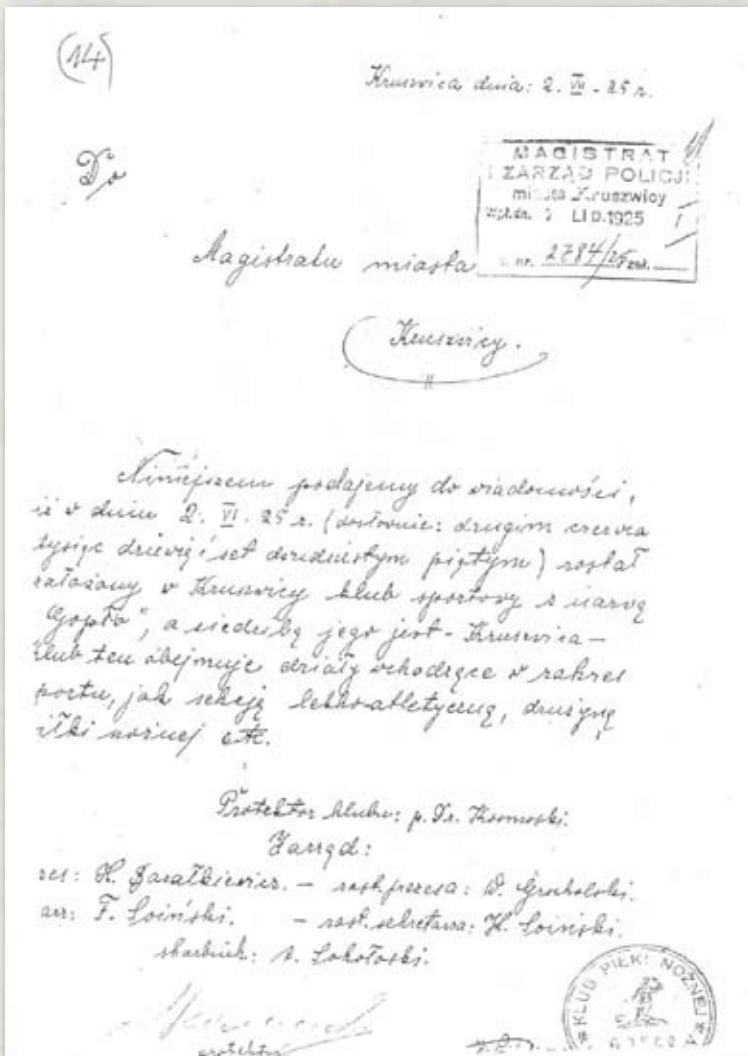 (14)
Kruszwica dnia: 2. VII. 25 r.
Do
MAGISTRAT
I ZARZĄD POLICJI
miasta Kruszwicy
Wpł. dn. LIP. 1925
nr. 2784/25 zał.
Magistratu miasta
Kruszwicy.
Niniejszem podajemy do wiadomości,
iż w dniu 2. VI. 25 r. (dosłownie: drugim czerwca
tysiąc dziewięćset dwudziestym piątym) został
założony w Kruszwicy klub sportowy z nazwą
Gopło", a siedzibą jego jest - Kruszwica -
klub ten obejmuje działy wchodzące w zakres
portu, jak sekcję lekko-atletyczną, drużynę
iłki nożnej etc.
Protektor klubu: p. Dr.
Zarząd:
zes: - zast. prezesa:
arz: F. Łoiński. - zast. sekretarza: H. Łoiński.
skarbnik:
protektor
KLUB PIŁKI NOŻNEJ